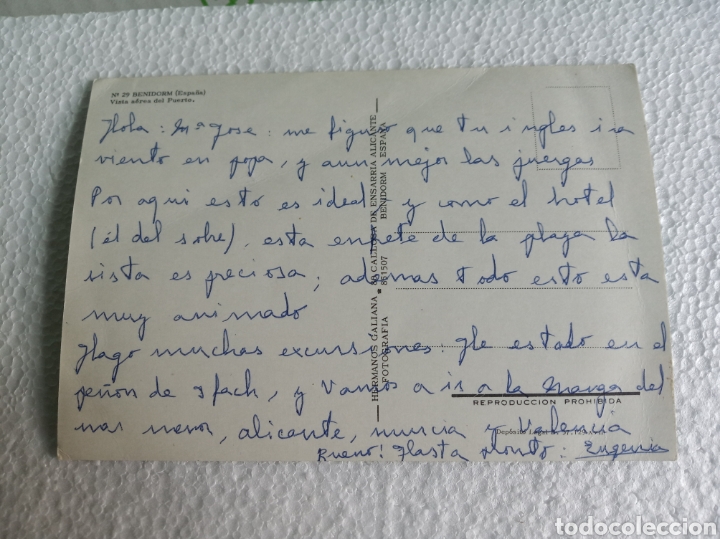 Nº 29 BENIDORM (España)
Vista aérea del Puerto.
Hola: Mª Jose: me figuro que tu ingles ira
viento en popa, y aun mejor las juergas
Por aqui esto es ideal y como el hotel
(él del sobre), esta enfrete de la playa la
vista es preciosa; ademas todo esto esta
muy animado
Hago muchas excursiones. He estado en el
peñon de Ifach, y vamos a ir a la Manga del
mar menor, alicante, murcia y Valencia
Bueno! Hasta pronto: Eugenia
HERMANOS GALIANA * CALLOSA DE ENSARRIA ALICANTE
FOTOGRAFIA * 851507 BENIDORM ESPAÑA
REPRODUCCION PROHIBIDA
Depósito Legal
todocoleccion